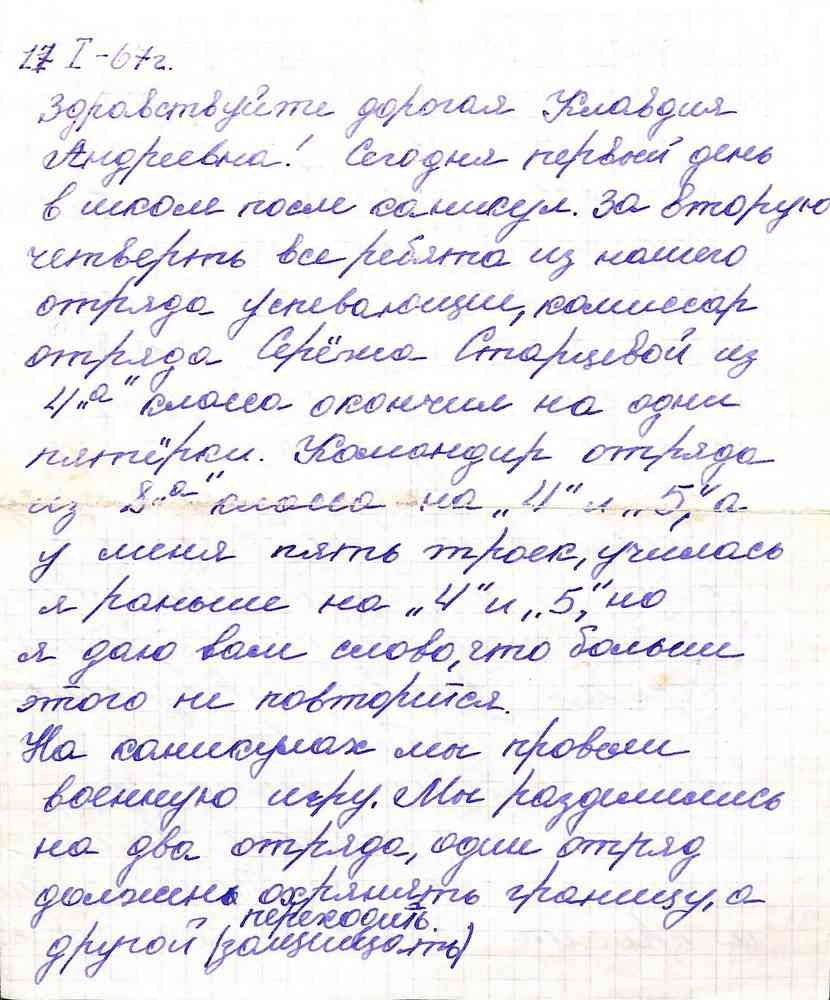 17 I-67г.
Здравствуйте дорогая Клавдия
Андреевна! Сегодня первый день
в школе после каникул. За вторую
четверть все ребята из нашего
отряда успевающии, комиссар
отряда Серёжа Старцевой из
4 „а" класса окончил на одни
пятёрки. Командир отряда
из 8 „а" класса на „4" и „5," а
у меня пять троек, училась
я раньше на „4" и „5," но
я даю вам слово, что больши
этого не повторится.
На каникулах мы провели
военную игру. Мы разделились
на два отряда, один отряд
должен охрянять границу, а
переходить.
другой (защищать)